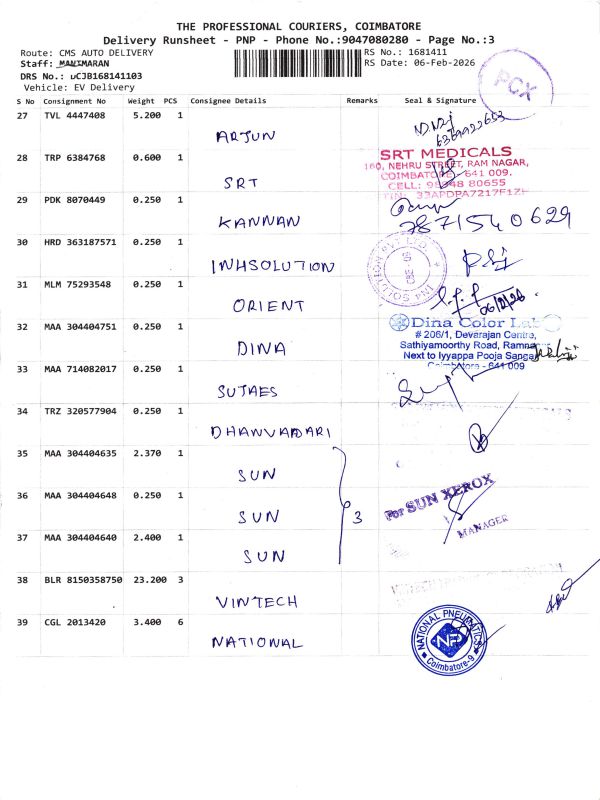 THE PROFESSIONAL COURIERS, COIMBATORE
Delivery Runsheet - PNP - Phone No.:9047080280 - Page No.:3
Route: CMS AUTO DELIVERY RS No.: 1681411
Staff: MANIMARAN RS Date: 06-Feb-2026
DRS No.: UCJB168141103
Vehicle: EV Delivery
PCX
S No Consignment No Weight PCS Consignee Details Remarks Seal & Signature
27 TVL 4447408 5.200 1 ARJUN
6369922653
28 TRP 6384768 0.600 1 SRT
SRT MEDICALS
160, NEHRU STREET, RAM NAGAR,
COIMBATORE - 641 009.
CELL: 98948 80655
29 PDK 8070449 0.250 1 KANNAN
7871540629
30 HRD 363187571 0.250 1 INHSOLUTION
31 MLM 75293548 0.250 1 ORIENT
06/2/26
32 MAA 304404751 0.250 1 DINA
Dina Color Lab
# 206/1, Devarajan Centre,
Sathiyamoorthy Road, Ramna
Next to Iyyappa Pooja Sanga
Coimbatore - 641 009
33 MAA 714082017 0.250 1 SUJAES
34 TRZ 320577904 0.250 1 DHANVANDARI
35 MAA 304404635 2.370 1 SUN
36 MAA 304404648 0.250 1 SUN 3
For SUN XEROX
MANAGER
37 MAA 304404640 2.400 1 SUN
38 BLR 8150358750 23.200 3 VINTECH
39 CGL 2013420 3.400 6 NATIONAL
NATIONAL PNEUMATICS
NP
Coimbatore-9